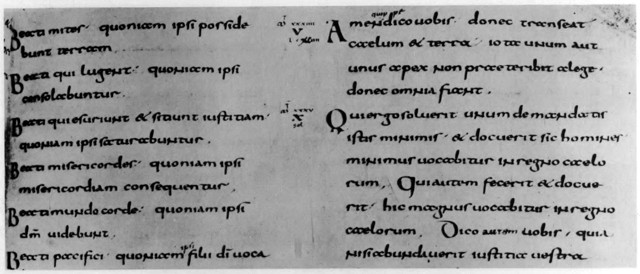 Beati mites · quoniam ipsi posside
bunt terram .
Beati qui lugent · quoniam ipsi
consolabuntur .
Beati qui esuriunt & sitiunt iustitiam ·
quoniam ipsi saturabuntur .
Beati misericordes · quoniam ipsi
misericordiam consequentur .
Beati mundo corde · quoniam ipsi
dm̄ uidebunt .
Beati pacifici quoniam ipsi filii dī uoca
xxxiiii
V
xxxv
X
Amen dico uobis · donec transeat
caelum & terra · iota unum aut
unus apex non praeteribit a lege ·
donec omnia fiant .
Qui ergo soluerit unum de mandatis
istis minimis · & docuerit sic homines
minimus uocabitur in regno caelo
rum . Qui autem fecerit & docue
rit · hic magnus uocabitur in regno
caelorum . Dico autem uobis · quia
nisi abundauerit iustitia uestra